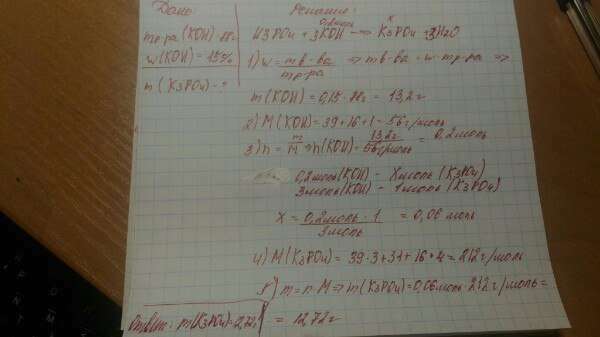 Дано:
mр-ра (KOH) = 88г
w(KOH) = 15%
m (K3PO4) - ?
Решение:
0,2моль X
H3PO4 + 3KOH → K3PO4 + 3H2O
1) w = mв-ва / mр-ра ⇒ mв-ва = w · mр-ра ⇒
m(KOH) = 0,15 · 88г = 13,2г
2) M(KOH) = 39+16+1 = 56г/моль
3) n = m/M ⇒ n(KOH) = 13,2г / 56г/моль = 0,2моль
0,2моль(KOH) - Xмоль (K3PO4)
3моль(KOH) - 1моль (K3PO4)
X = 0,2моль · 1 / 3моль = 0,06 моль
4) M(K3PO4) = 39·3+31+16·4 = 212г/моль
5) m = n · M ⇒ m(K3PO4) = 0,06моль · 212г/моль =
= 12,72г
Ответ: m(K3PO4) = 12,72г